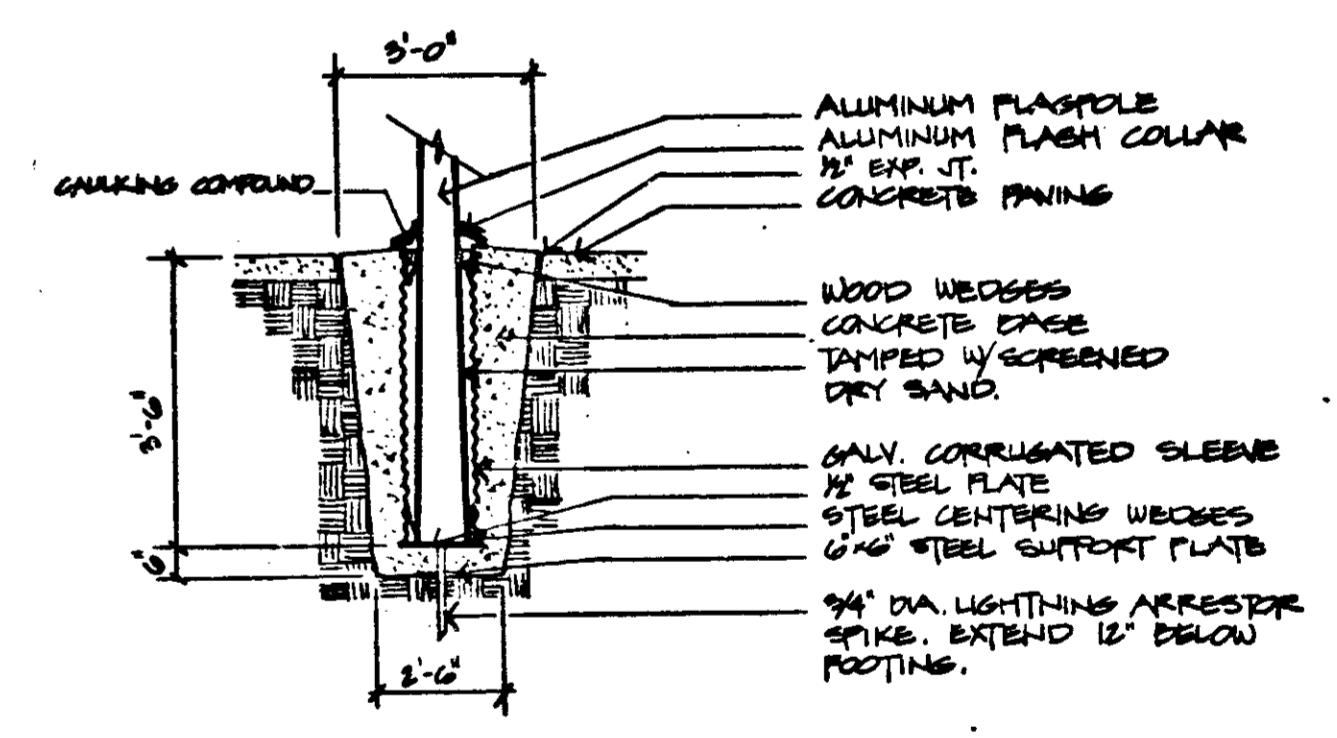 3'-0"
ALUMINUM FLAGPOLE
ALUMINUM FLASH COLLAR
1/2" EXP. JT.
CONCRETE PAVING
CAULKING COMPOUND
WOOD WEDGES
CONCRETE BASE
TAMPED W/ SCREENED
DRY SAND.
3'-6"
GALV. CORRUGATED SLEEVE
1/2" STEEL PLATE
STEEL CENTERING WEDGES
6"x6" STEEL SUPPORT PLATE
6"
3/4" DIA. LIGHTNING ARRESTOR
SPIKE. EXTEND 12" BELOW
FOOTING.
2'-6"